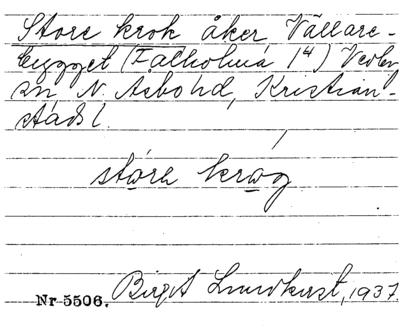 Store krok åker Vällare-
bygget (Fälholma 1⁴)
sn N. Åsbo hd, Kristian-
stads l.
stora krog
Nr 5506. Birgit Lundkvist, 1937.